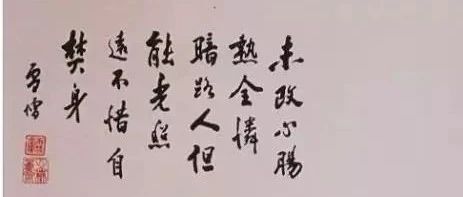 未改心腸
熱全憐
暗路人但
能光照
遠不惜自
焚身
雪儔